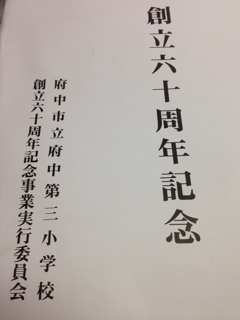 創立六十周年記念
府中市立府中第三小学校
創立六十周年記念事業実行委員会